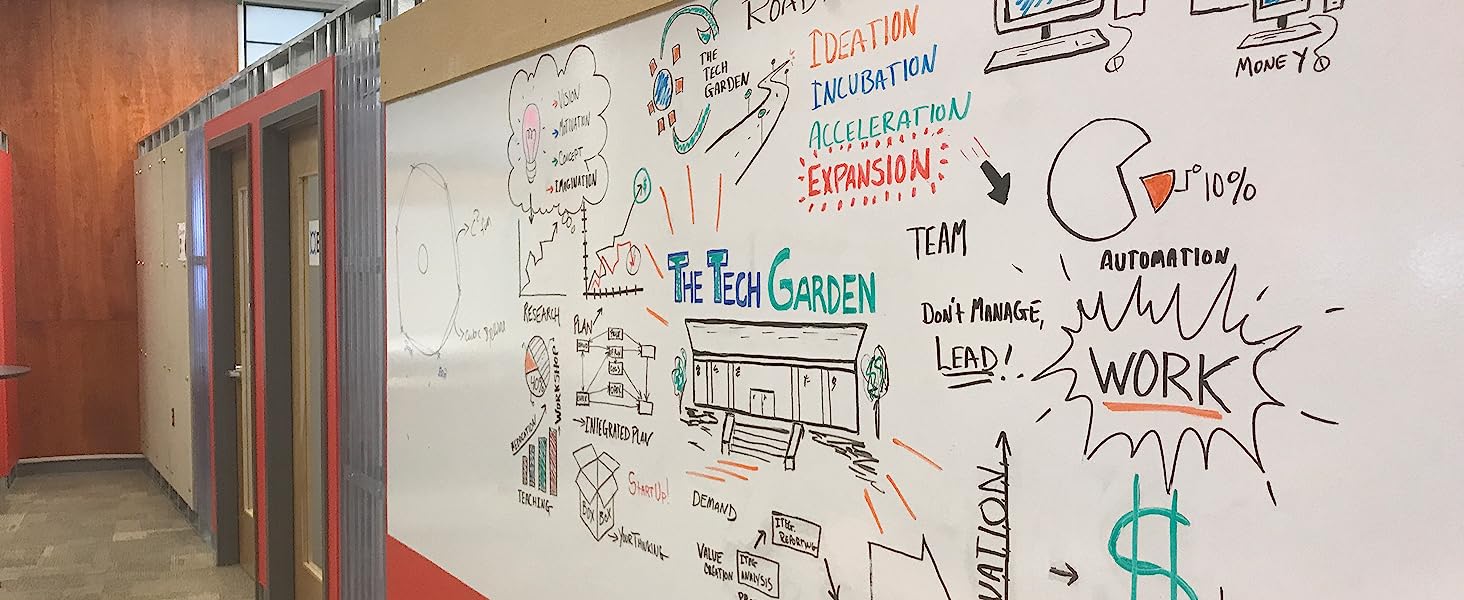 VISION
MOTIVATION
CONCEPT
IMAGINATION
THE
TECH
GARDEN
IDEATION
INCUBATION
ACCELERATION
EXPANSION
MONEY
10%
AUTOMATION
TEAM
DON'T MANAGE,
LEAD!
WORK
THE TECH GARDEN
RESEARCH
PLAN
WORKSHOP
40%
INTEGRATED PLAN
TEACHING
START UP!
BOX
BOX
YOUR THINKING
DEMAND
VALUE
CREATION
ITEG.
REPORTING
ITEG
ANALYSIS
VATION
$